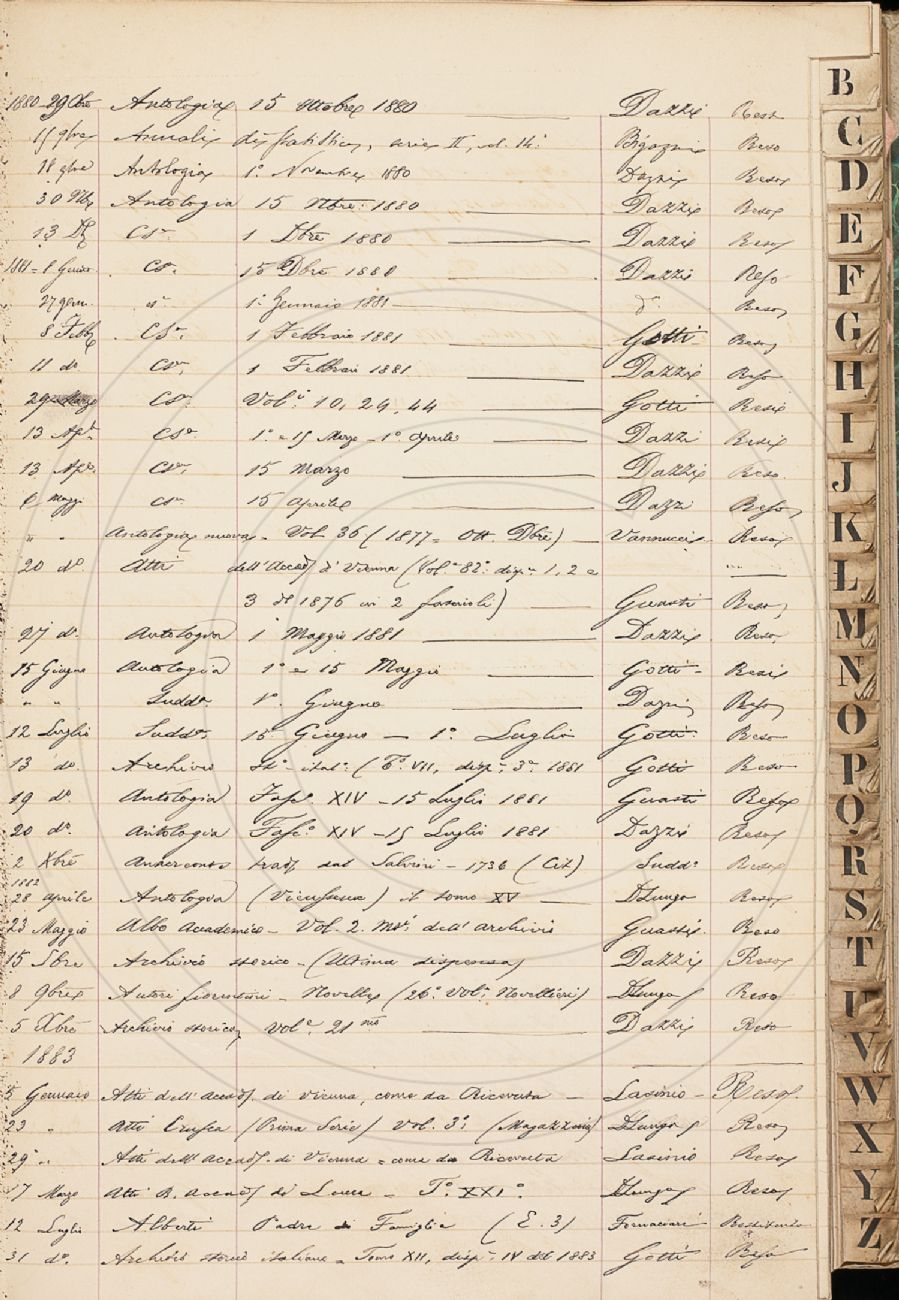 1880 - 29 Obre Antologia 15 Ottobre 1880 Dazzi Reso
15 9bre Annali di statistica, serie II, vol. 14: Bigazzi Reso
18 9bre Antologia 1º Novembre 1880 Dazzi Reso
30 9bre Antologia 15 9bre 1880 Dazzi Reso
13 Dbre Csa 1 Dbre 1880 Dazzi Reso
1881 - 8 Genio Csa 15 Dbre 1880 Dazzi Reso
27 genn. 1º Gennaio 1881 dº Reso
8 Febb. Csa 1 Febbraio 1881 Gotti Reso
11 do Csa 1 Febbraio 1881 Dazzi Reso
29 Marzo Csa Vol.i 10, 24, 44 Gotti Resi
13 Apl. Csa 1º e 15 Marzo - 1º Aprile Dazzi Resi
13 Apl. Csa 15 Marzo Dazzi Reso
6 Maggio Csa 15 Aprile Dazzi Reso
" " Antologia nuova - Vol. 36 (1877 = Ott. Dbre) Vannucci Reso
20 dº Atti dell'Accad. di Vienna (Vol.e 82º disp.e 1, 2 e
3 del 1876 in 2 fascicoli) Guasti Reso
27 do. Antologia 1 Maggio 1881 Dazzi Reso
15 Giugno Antologia 1º e 15 Maggio Gotti Resi
" " Sudda 1º. Giugno Dazzi Reso
12 Luglio Sudda. 15 Giugno - 1º. Luglio Gotti Reso
13 do. Archivio Stº. italº: (Tº. VII, disp. 3ª. 1881 Gotti Reso
19 dº Antologia Fasc. XIV - 15 Luglio 1881 Guasti Reso
20 do. Antologia Fascº XIV - 15 Luglio 1881 Dazzi Reso
2 Xbre Anacreonte trad. dal Salvini - 1736 (Cit.) Suddº Reso
1882
28 Aprile Antologia il tomo XV DLungo Reso
23 Maggio Albo accademico - Vol. 2. ms. dell'archivio Guasti Reso
15 Sbre Archivio storico - (Ultima dispensa) Dazzi Reso
8 9bre Autori fiorentini - Novelle (26º. Vol. Novellieri) DLungo Reso
5 Xbre Archivio storico, Vol.e 21mo Dazzi Reso
1883
5 Gennaio Atti dell'Accad. di Vienna, come da Ricevuta Lasinio Reso
23 " Atti Crusca (Prima Serie) Vol. 3º: (Magazzino) DLungo Reso
29 " Atti dell'Accad. di Vienna = come da Ricevuta Lasinio Reso
17 Marzo Atti R. Accad. di Lucca - Tº. XXIº. DLungo Reso
12 Luglio Alberti Padre di Famiglia (E. 3) Fornaciari
31 do. Archivio storico italiano = Tomo XII, disp. IV del 1883 Gotti Reso
B
C
D
E
F
G
H
I
J
K
L
M
N
O
P
Q
R
S
T
U
V
W
X
Y
Z